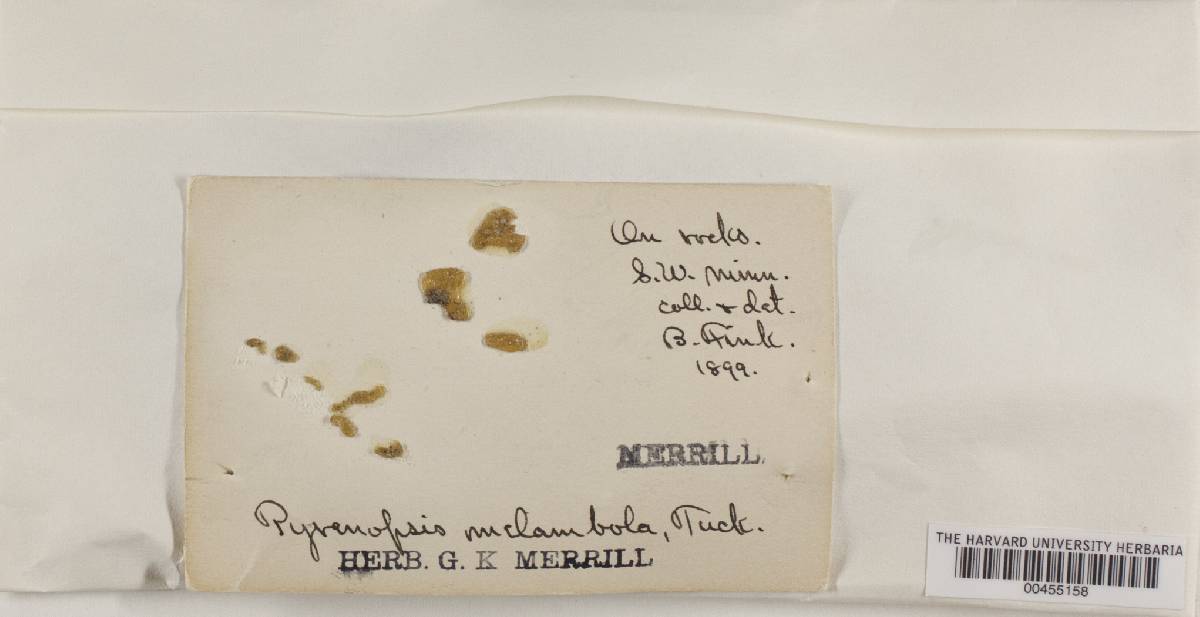 On rocks.
S.W. Minn.
coll. & det.
B. Fink.
1899.
MERRILL
Pyrenopsis melambola, Tuck.
HERB. G. K MERRILL
THE HARVARD UNIVERSITY HERBARIA
00455158